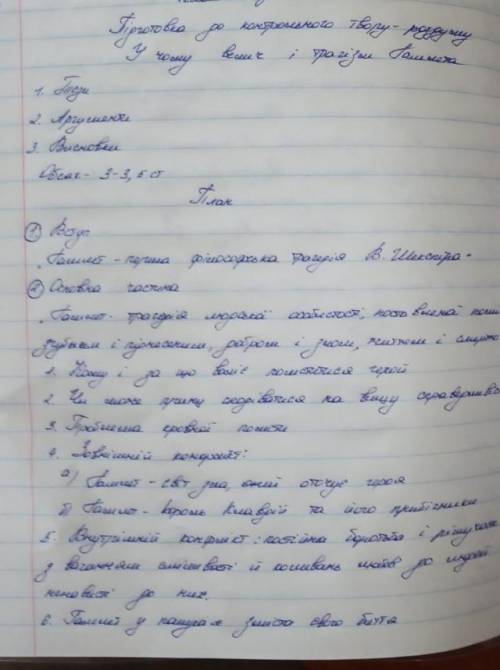 Підготовка до контрольного твору-роздуму
У чому велич і трагізм Гамлета
1. Тези
2. Аргументи
3. Висновки
Обсяг - 3-3,5 ст
План
1. Вступ
"Гамлет - перша філософська трагедія В. Шекспіра"
2. Основна частина
"Гамлет - трагедія людської особистості, поставленої
і піднесеним, добром і злом, життям і
1. Кому і за що воліє помститися герой
2. Чи може принц сподіватися на вищу
3. Проблема кровної помсти
4. Зовнішній конфлікт:
а) Гамлет - світ зла, який оточує героя
б) Гамлет - король Клавдій та його прибічники
5. Внутрішній конфлікт: постійна боротьба і
з ваганням сміливості й коливань любові до людей і
ненависті до них.
6. Гамлет у пошуках змісту свого буття